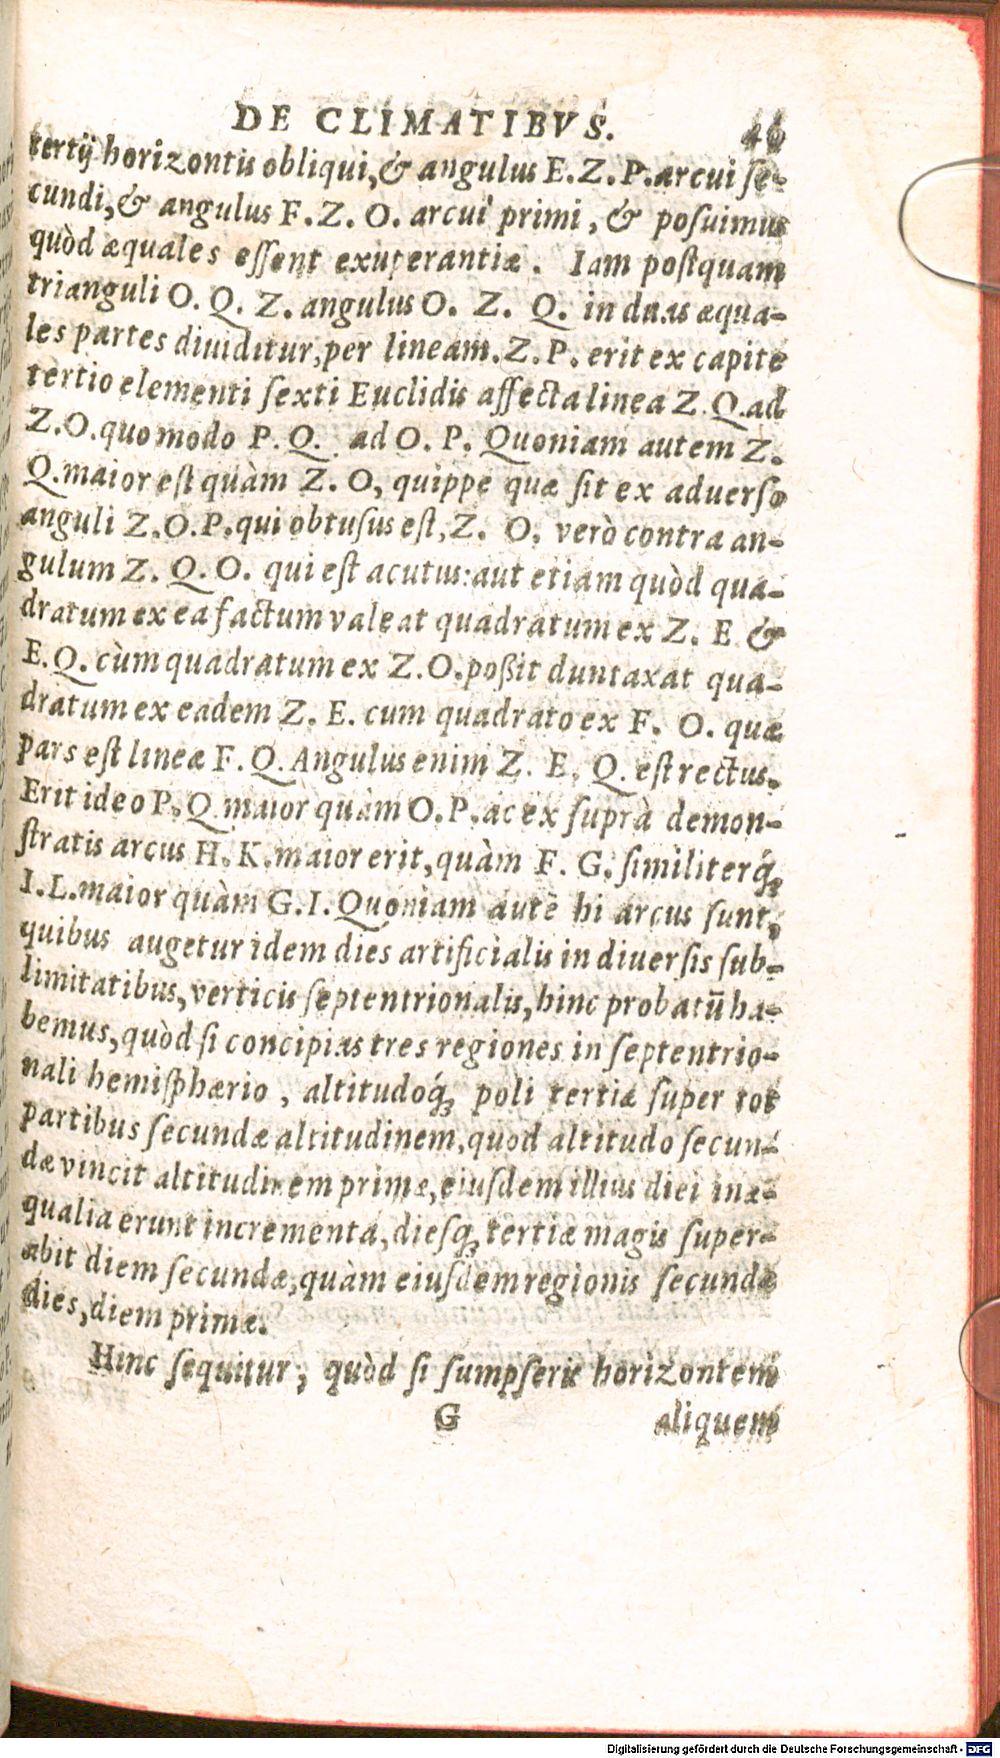 DE CLIMATIBVS. 46
tertij horizontis obliqui, & angulus E. Z. P. arcui se-
cundi, & angulus F. Z. O. arcui primi, & posuimus
quòd æquales essent exuperantiæ. Iam postquam
trianguli O. Q. Z. angulus O. Z. Q. in duas æqua-
les partes diuiditur, per lineam. Z. P. erit ex capite
tertio elementi sexti Euclidis affecta linea Z. Q. ad
Z. O. quomodo P. Q. ad O. P. Quoniam autem Z.
Q. maior est quàm Z. O, quippe quæ sit ex aduerso
anguli Z. O. P. qui obtusus est, Z. O. verò contra an-
gulum Z. Q. O. qui est acutus: aut etiam quòd qua-
dratum ex ea factum valeat quadratum ex Z. E &
E. Q. cùm quadratum ex Z. O. poßit duntaxat qua-
dratum ex eadem Z. E. cum quadrato ex F. O. quæ
pars est lineæ F. Q. Angulus enim Z. E. Q. est rectus.
Erit ideo P. Q maior quàm O. P. ac ex suprà demon-
stratis arcus H. K. maior erit, quàm F. G. similiterq́;
I. L. maior quàm G. I. Quoniam autē hi arcus sunt,
quibus augetur idem dies artificialis in diuersis sub-
limitatibus, verticis septentrionalis, hinc probatū ha-
bemus, quòd si concipias tres regiones in septentrio-
nali hemisphærio, altitudoq́; poli tertiæ super tot
partibus secundæ altitudinem, quod altitudo secun-
dæ vincit altitudinem primæ, eiusdem illius diei inæ-
qualia erunt incrementa, diesq; tertiæ magis super-
abit diem secundæ, quàm eiusdem regionis secundæ
dies, diem primæ.
Hinc sequitur; quòd si sumpseris horizontem
G aliquem
Digitalisierung gefördert durch die Deutsche Forschungsgemeinschaft - DFG